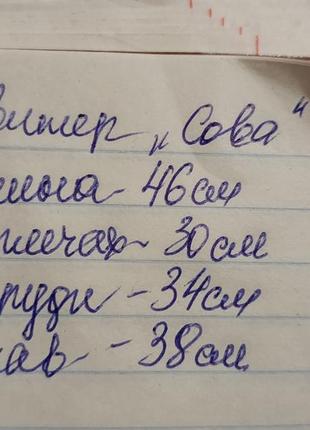 олитер „Сова"
лина - 46см
плечах - 30см
груди - 34см
кав - 38см